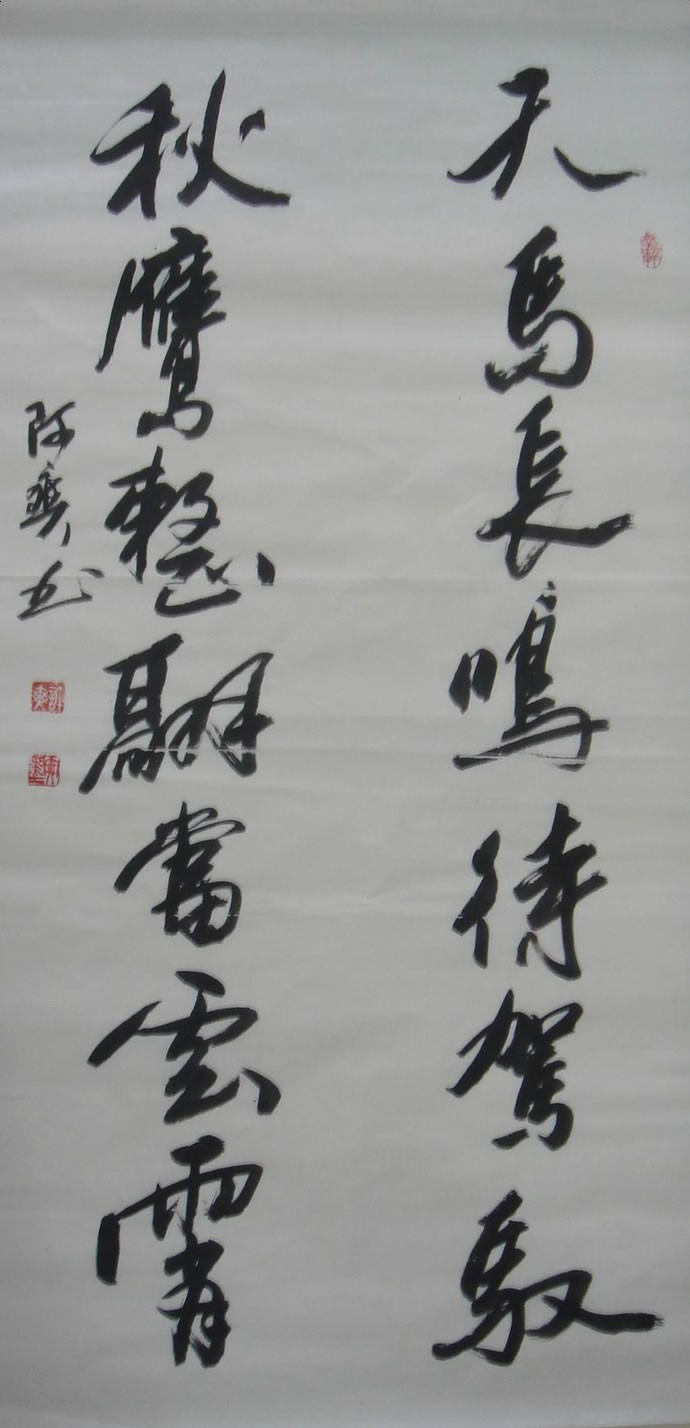 天馬長鳴待駕馭
秋鷹整翮當雲霄